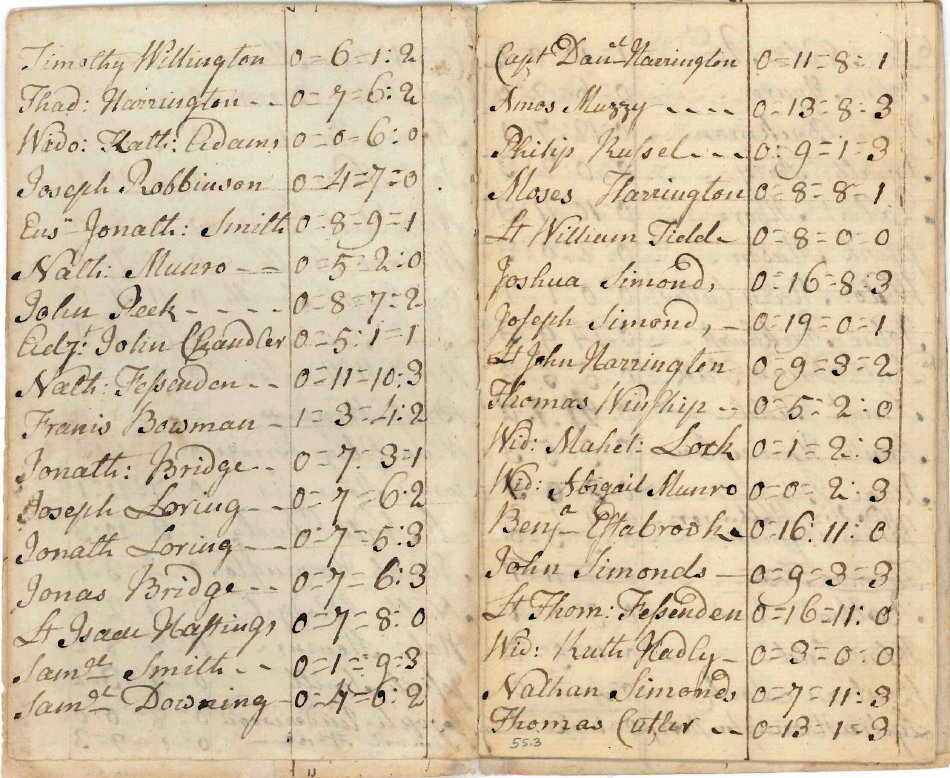 Timothy Willington 0=6=1:2
Thad: Harrington -- 0=7=6:2
Wido: Kath: Adams 0=0=6:0
Joseph Robbinson 0=4=7=0
Ens.n Jonath: Smith 0=8=9=1
Nath: Munro -- 0=5=2:0
John Peek ----- 0=8=7=2
Adj.t John Chandler 0=5:1=1
Nath: Fessenden -- 0=11=10:3
Franis Bowman - 1=3=4:2
Jonath: Bridge -- 0=7:3=1
Joseph Loring -- 0=7=6:2
Jonath Loring -- 0=7=5:3
Jonas Bridge -- 0=7=6:3
Lt Isaac Hastings 0=7=8:0
Sam.el Smith -- 0=1=9=3
Sam.el Downing 0=4=6:2
Capt Dan.el Harrington 0=11=8:1
Amos Muzzy ---- 0=13=8:3
Philip Russel --- 0:9=1=3
Moses Harrington 0=8=8=1
Lt William Tidd - 0=8=0=0
Joshua Simonds 0=16=8:3
Joseph Simonds - 0=19=0=1
Lt John Harrington 0=9=3=2
Thomas Winship -- 0=5=2:0
Wid: Mahet: Lock 0=1=2:3
Wid: Abigail Munro 0=0=2:3
Benj.a Estabrook 0=16:11:0
John Simonds - 0=9=3=3
Lt Thom: Fessenden 0=16=11:0
Wid: Ruth Hadly - 0=3=0:0
Nathan Simonds 0=7=11:3
Thomas Cutler -- 0=13=1=3
553